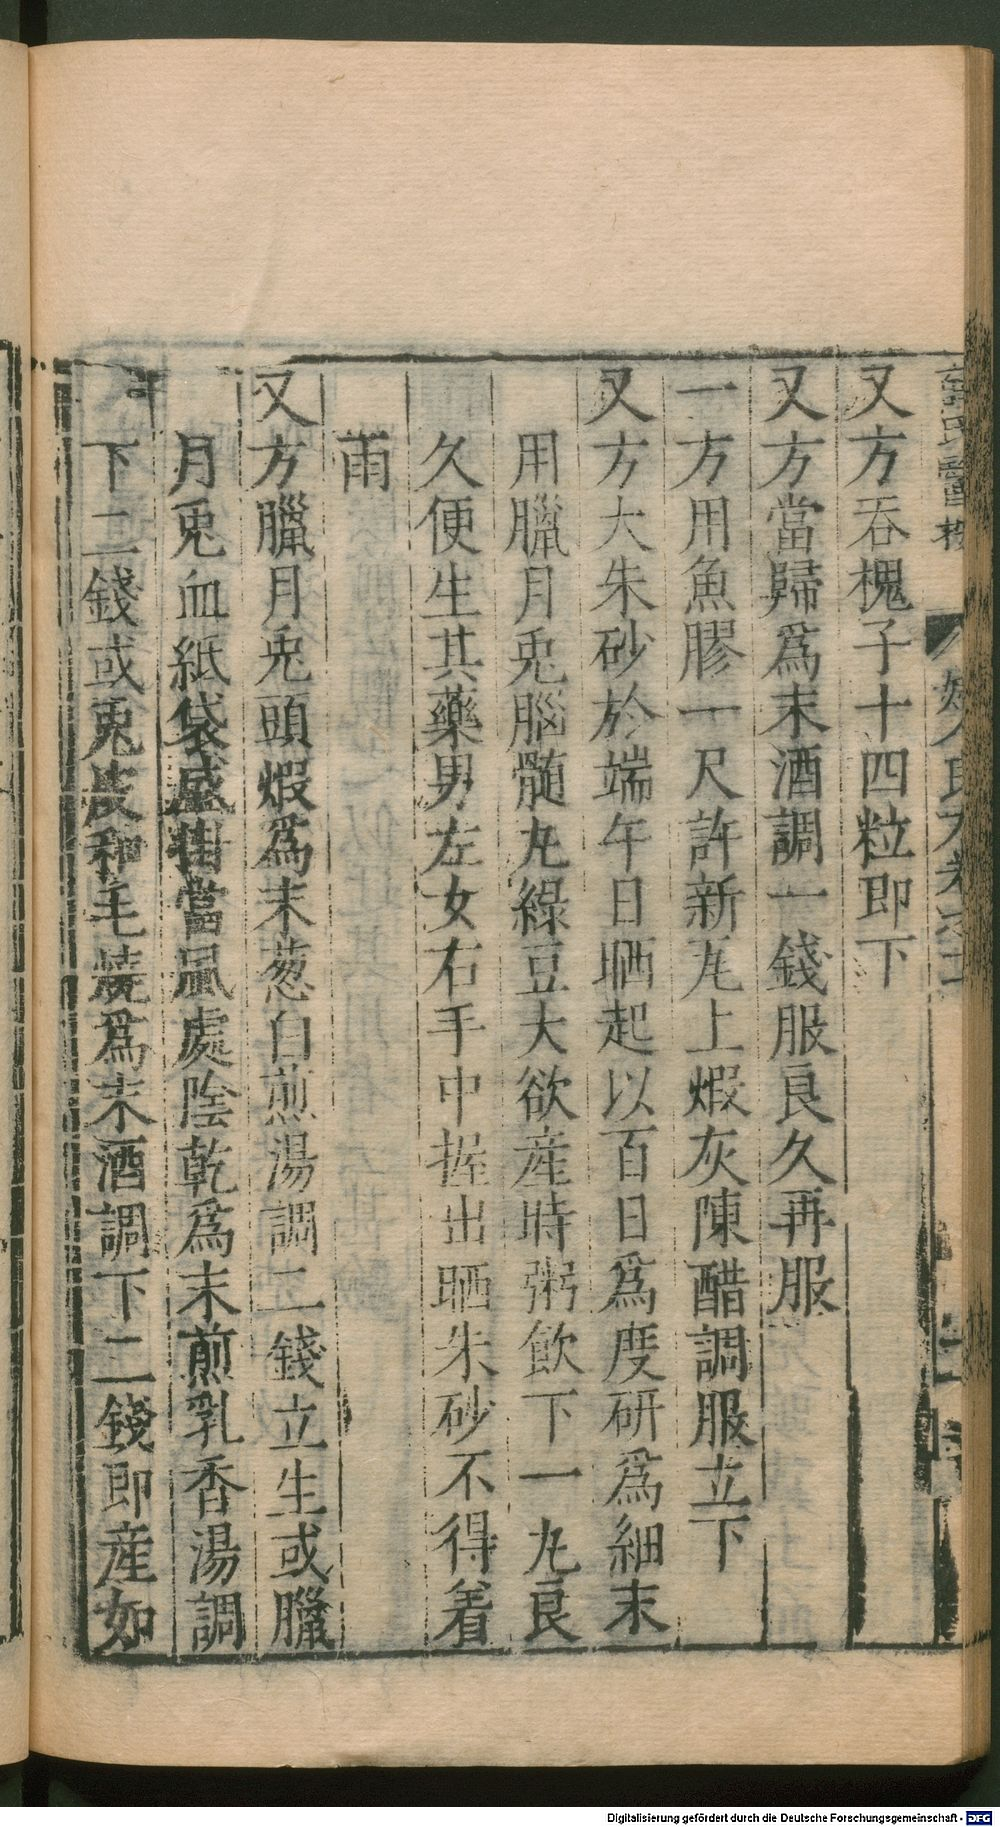 又方吞槐子十四粒即下
又方當歸爲末酒調一錢服良久再服
一方用魚膠一尺許新瓦上煆灰陳醋調服立下
又方大朱砂於端午日晒起以百日爲度研爲細末
用臘月兎腦髓丸綠豆大欲産時粥飲下一丸良
久便生其藥男左女右手中握出晒朱砂不得着
雨
又方臘月兎頭煆爲末葱白煎湯調二錢立生或臘
月兎血紙袋盛掛當風處陰乾爲末煎乳香湯調
下二錢或兎皮和毛燒爲末酒調下二錢即産如
Digitalisierung gefördert durch die Deutsche Forschungsgemeinschaft - DFG